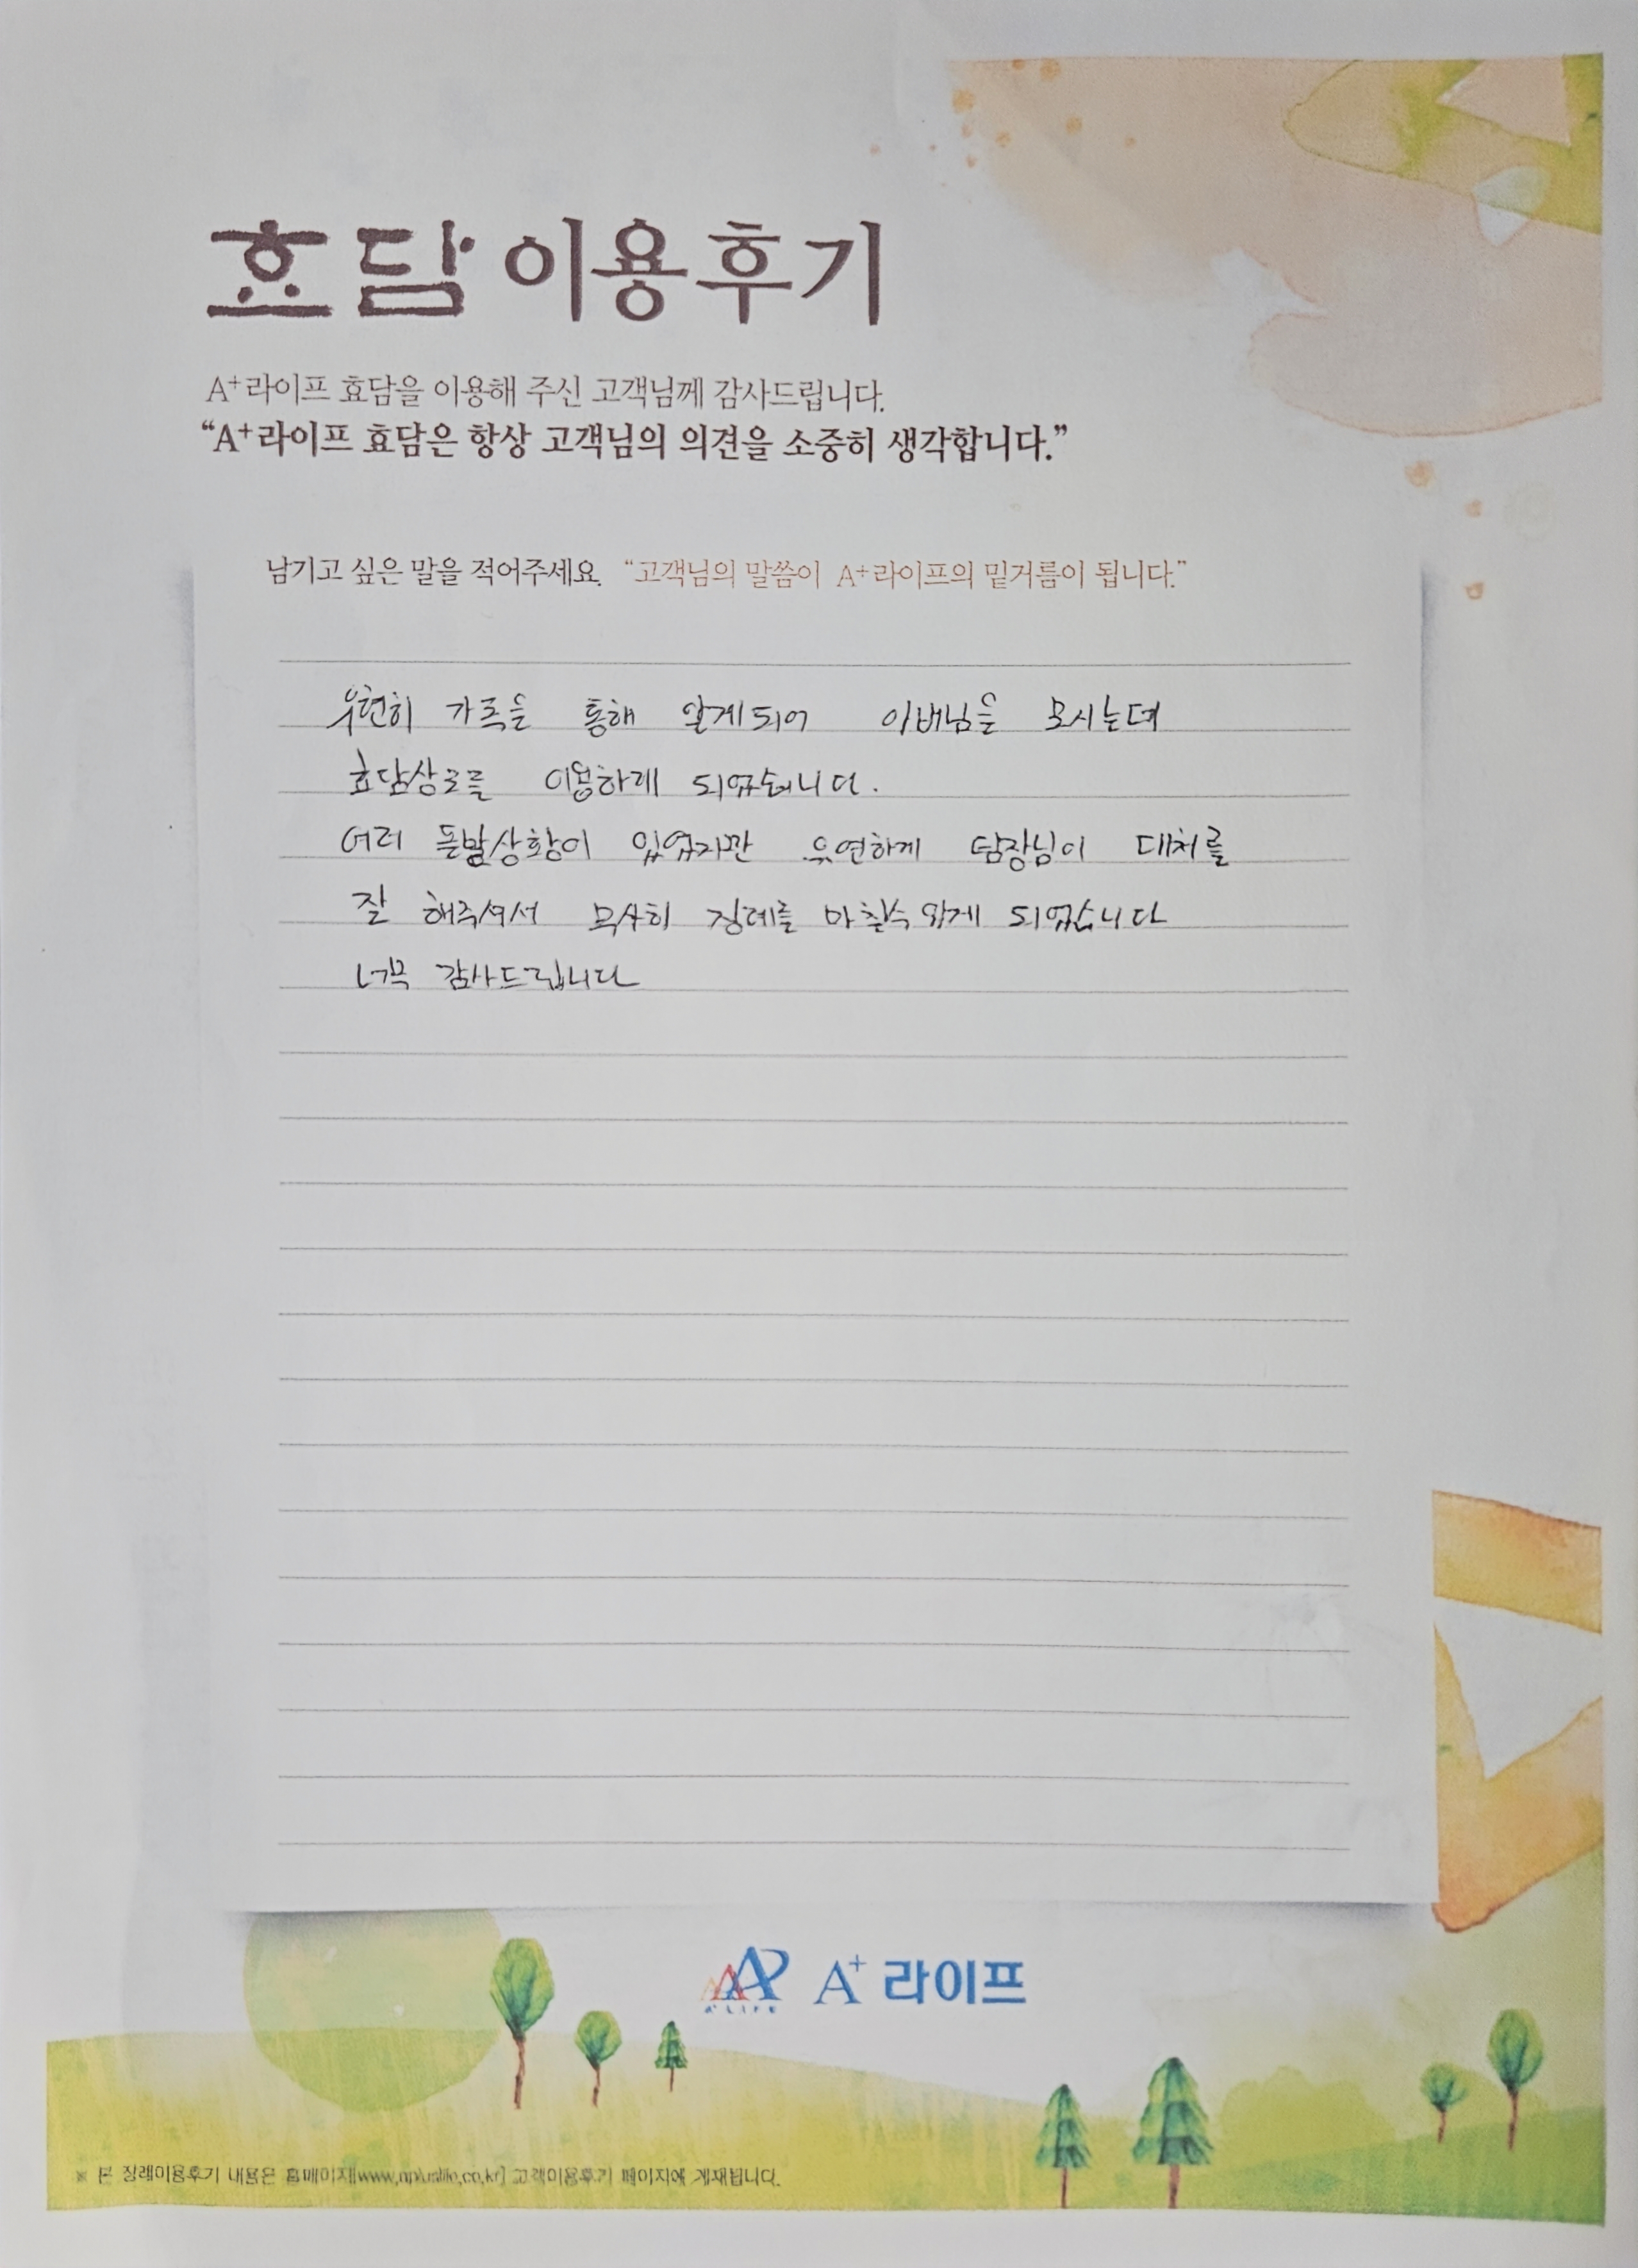 효담 이용후기
A⁺라이프 효담을 이용해 주신 고객님께 감사드립니다.
“A⁺라이프 효담은 항상 고객님의 의견을 소중히 생각합니다.”
남기고 싶은 말을 적어주세요. “고객님의 말씀이 A⁺라이프의 밑거름이 됩니다.”
우연히 가족을 통해 알게되어 아버님을 모시는데
효담상조를 이용하게 되었습니다.
여러 돌발상황이 있었지만 유연하게 팀장님이 대처를
잘 해주셔서 무사히 장례를 마칠수 있게 되었습니다
너무 감사드립니다
A⁺ LIFE A⁺ 라이프
※ 본 장례이용후기 내용은 홈페이지[www.apluslife.co.kr] 고객이용후기 페이지에 게재됩니다.